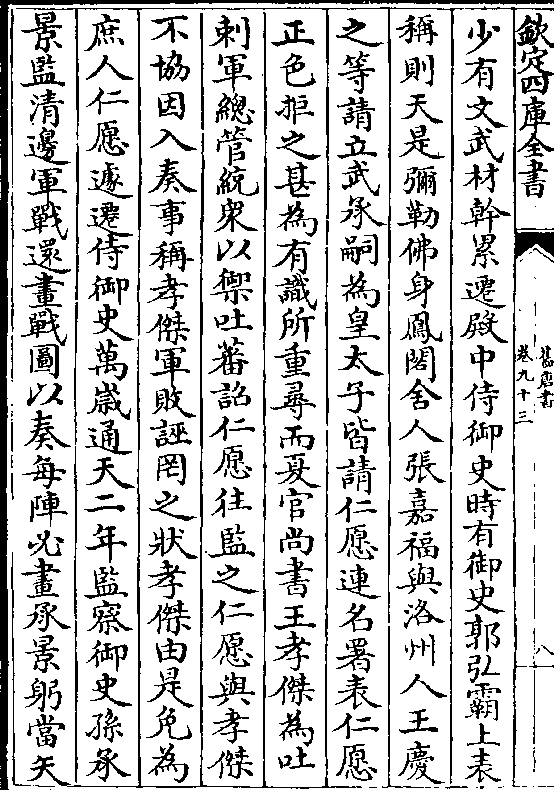 欽定四庫全書
舊唐書
卷九十三
八
少有文武材幹累遷殿中侍御史時有御史郭弘霸上表
稱則天是彌勒佛身鳳閣舍人張嘉福與洛州人王慶
之等請立武承嗣為皇太子皆請仁愿連名署表仁愿
正色拒之甚為有識所重尋而夏官尚書王孝傑為吐
剌軍總管統衆以禦吐蕃詔仁愿往監之仁愿與孝傑
不協因入奏事稱孝傑軍敗誣罔之狀孝傑由是免為
庶人仁愿遽遷侍御史萬歲通天二年監察御史孫承
景監清邊軍戰還畫戰圖以奏每陣必畫承景躬當矢